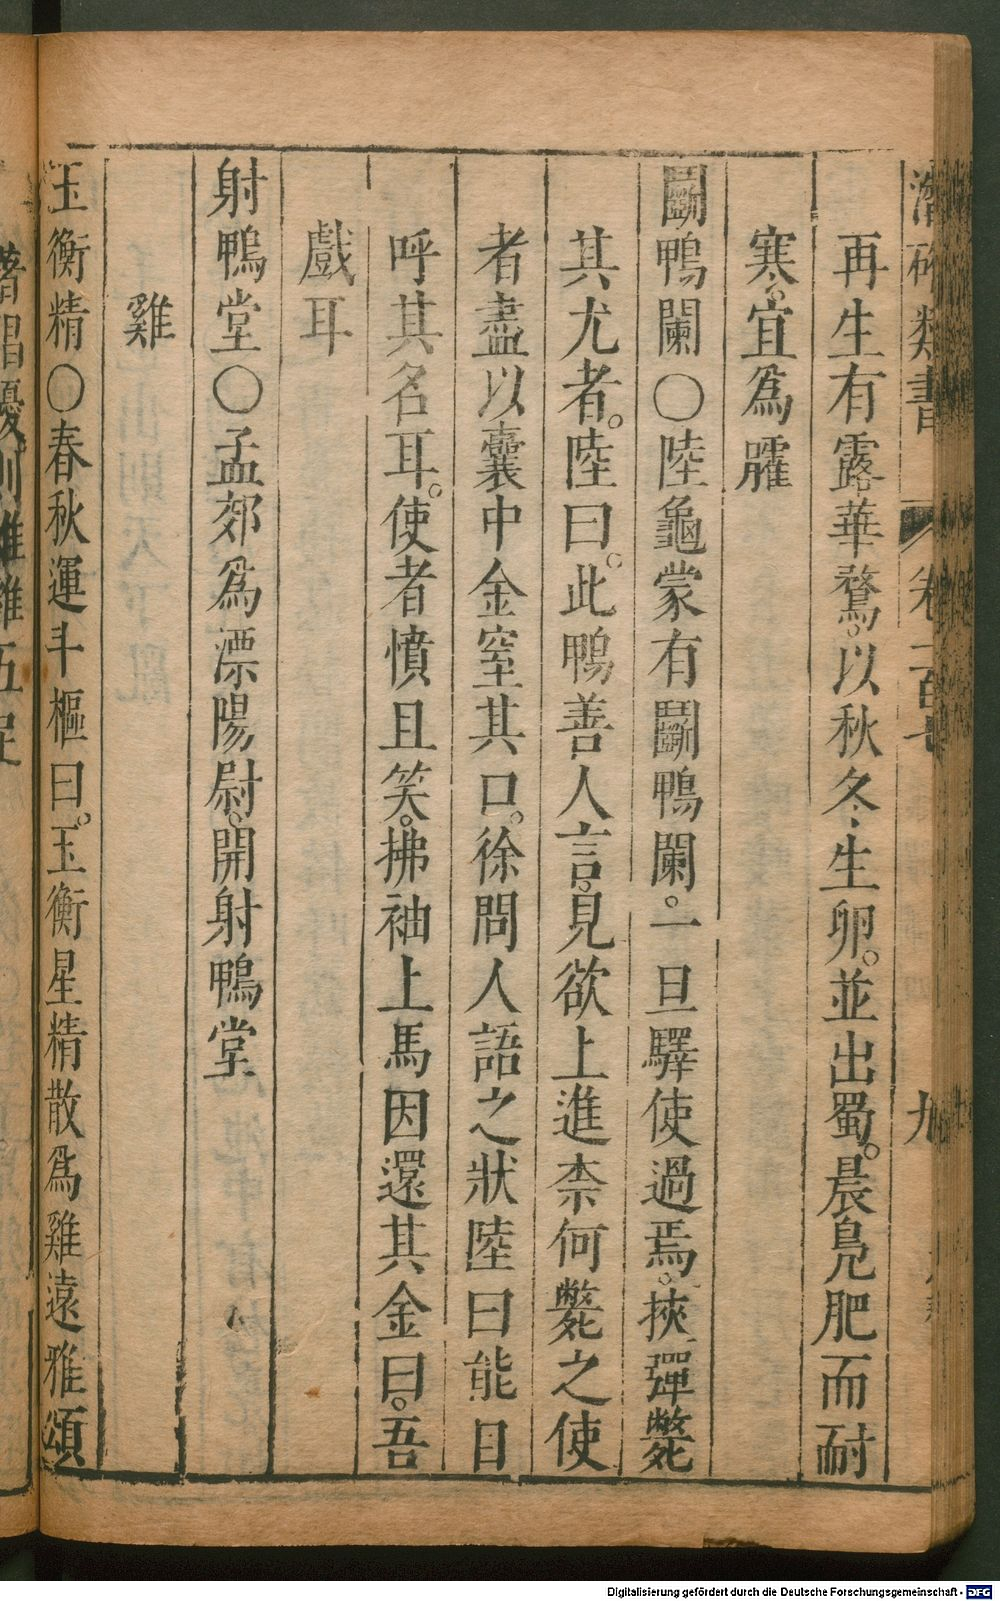 潛確類書 卷二百七 九
再生有露華鶩。以秋冬生卵。並出蜀。晨鳧肥而耐
寒。宜爲臛
鬭鴨闌〇陸龜蒙有鬭鴨闌。一旦驛使過焉。挾彈斃
其尤者。陸曰。此鴨善人言。見欲上進柰何斃之使
者盡以囊中金窒其口。徐問人語之狀陸曰能日
呼其名耳。使者憤且笑。拂袖上馬因還其金曰。吾
戲耳
射鴨堂〇孟郊爲漂陽尉。開射鴨堂
雞
玉衡精〇春秋運斗樞曰。玉衡星精散爲雞遠雅頌
著倡優則雄雞五足
Digitalisierung gefördert durch die Deutsche Forschungsgemeinschaft - DFG